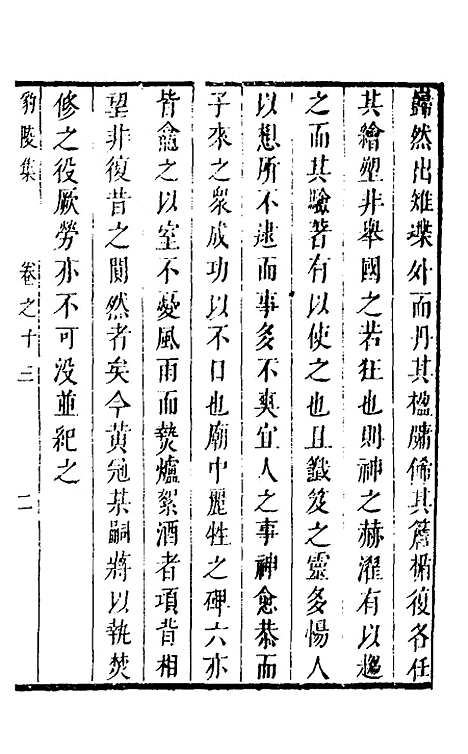 巋然出雉堞外而丹其楹牖俻其簷桷復各任
其繪塑非舉國之若狂也則神之赫濯有以趨
之而其驗著有以使之也且籤筊之靈多惕人
以想所不逮而事多不爽宜人之事神愈恭而
子來之衆成功以不日也廟中麗牲之碑六亦
皆龕之以室不憂風雨而爇爐絮酒者項背相
望非復昔之闃然者矣今黄冠某嗣蔣以執焚
修之役厥勞亦不可没並紀之
豹陵集 卷之十三 二